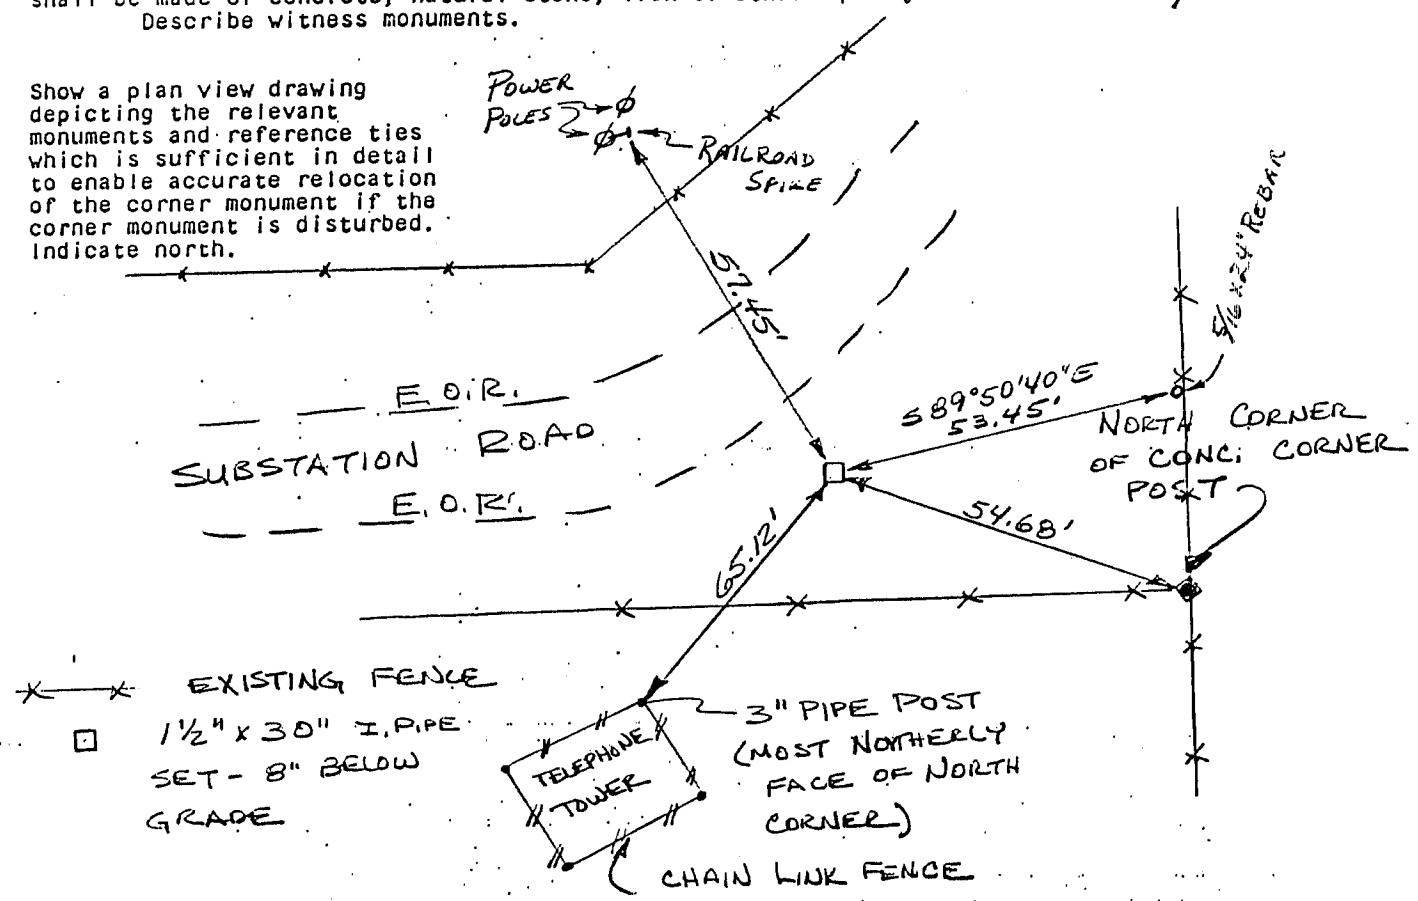 Describe witness monuments.
Show a plan view drawing
depicting the relevant
monuments and reference ties
which is sufficient in detail
to enable accurate relocation
of the corner monument if the
corner monument is disturbed.
Indicate north.
POWER
POLES
RAILROAD
SPIKE
57.45'
5/16 x 24" REBAR
S89°50'40"E
53.45'
NORTH CORNER
OF CONC. CORNER
POST
E.O.R.
SUBSTATION ROAD
E.O.R.
54.68'
65.12'
EXISTING FENCE
1½" x 30" I. PIPE
SET - 8" BELOW
GRADE
TELEPHONE
TOWER
3" PIPE POST
(MOST NOTHERLY
FACE OF NORTH
CORNER)
CHAIN LINK FENCE